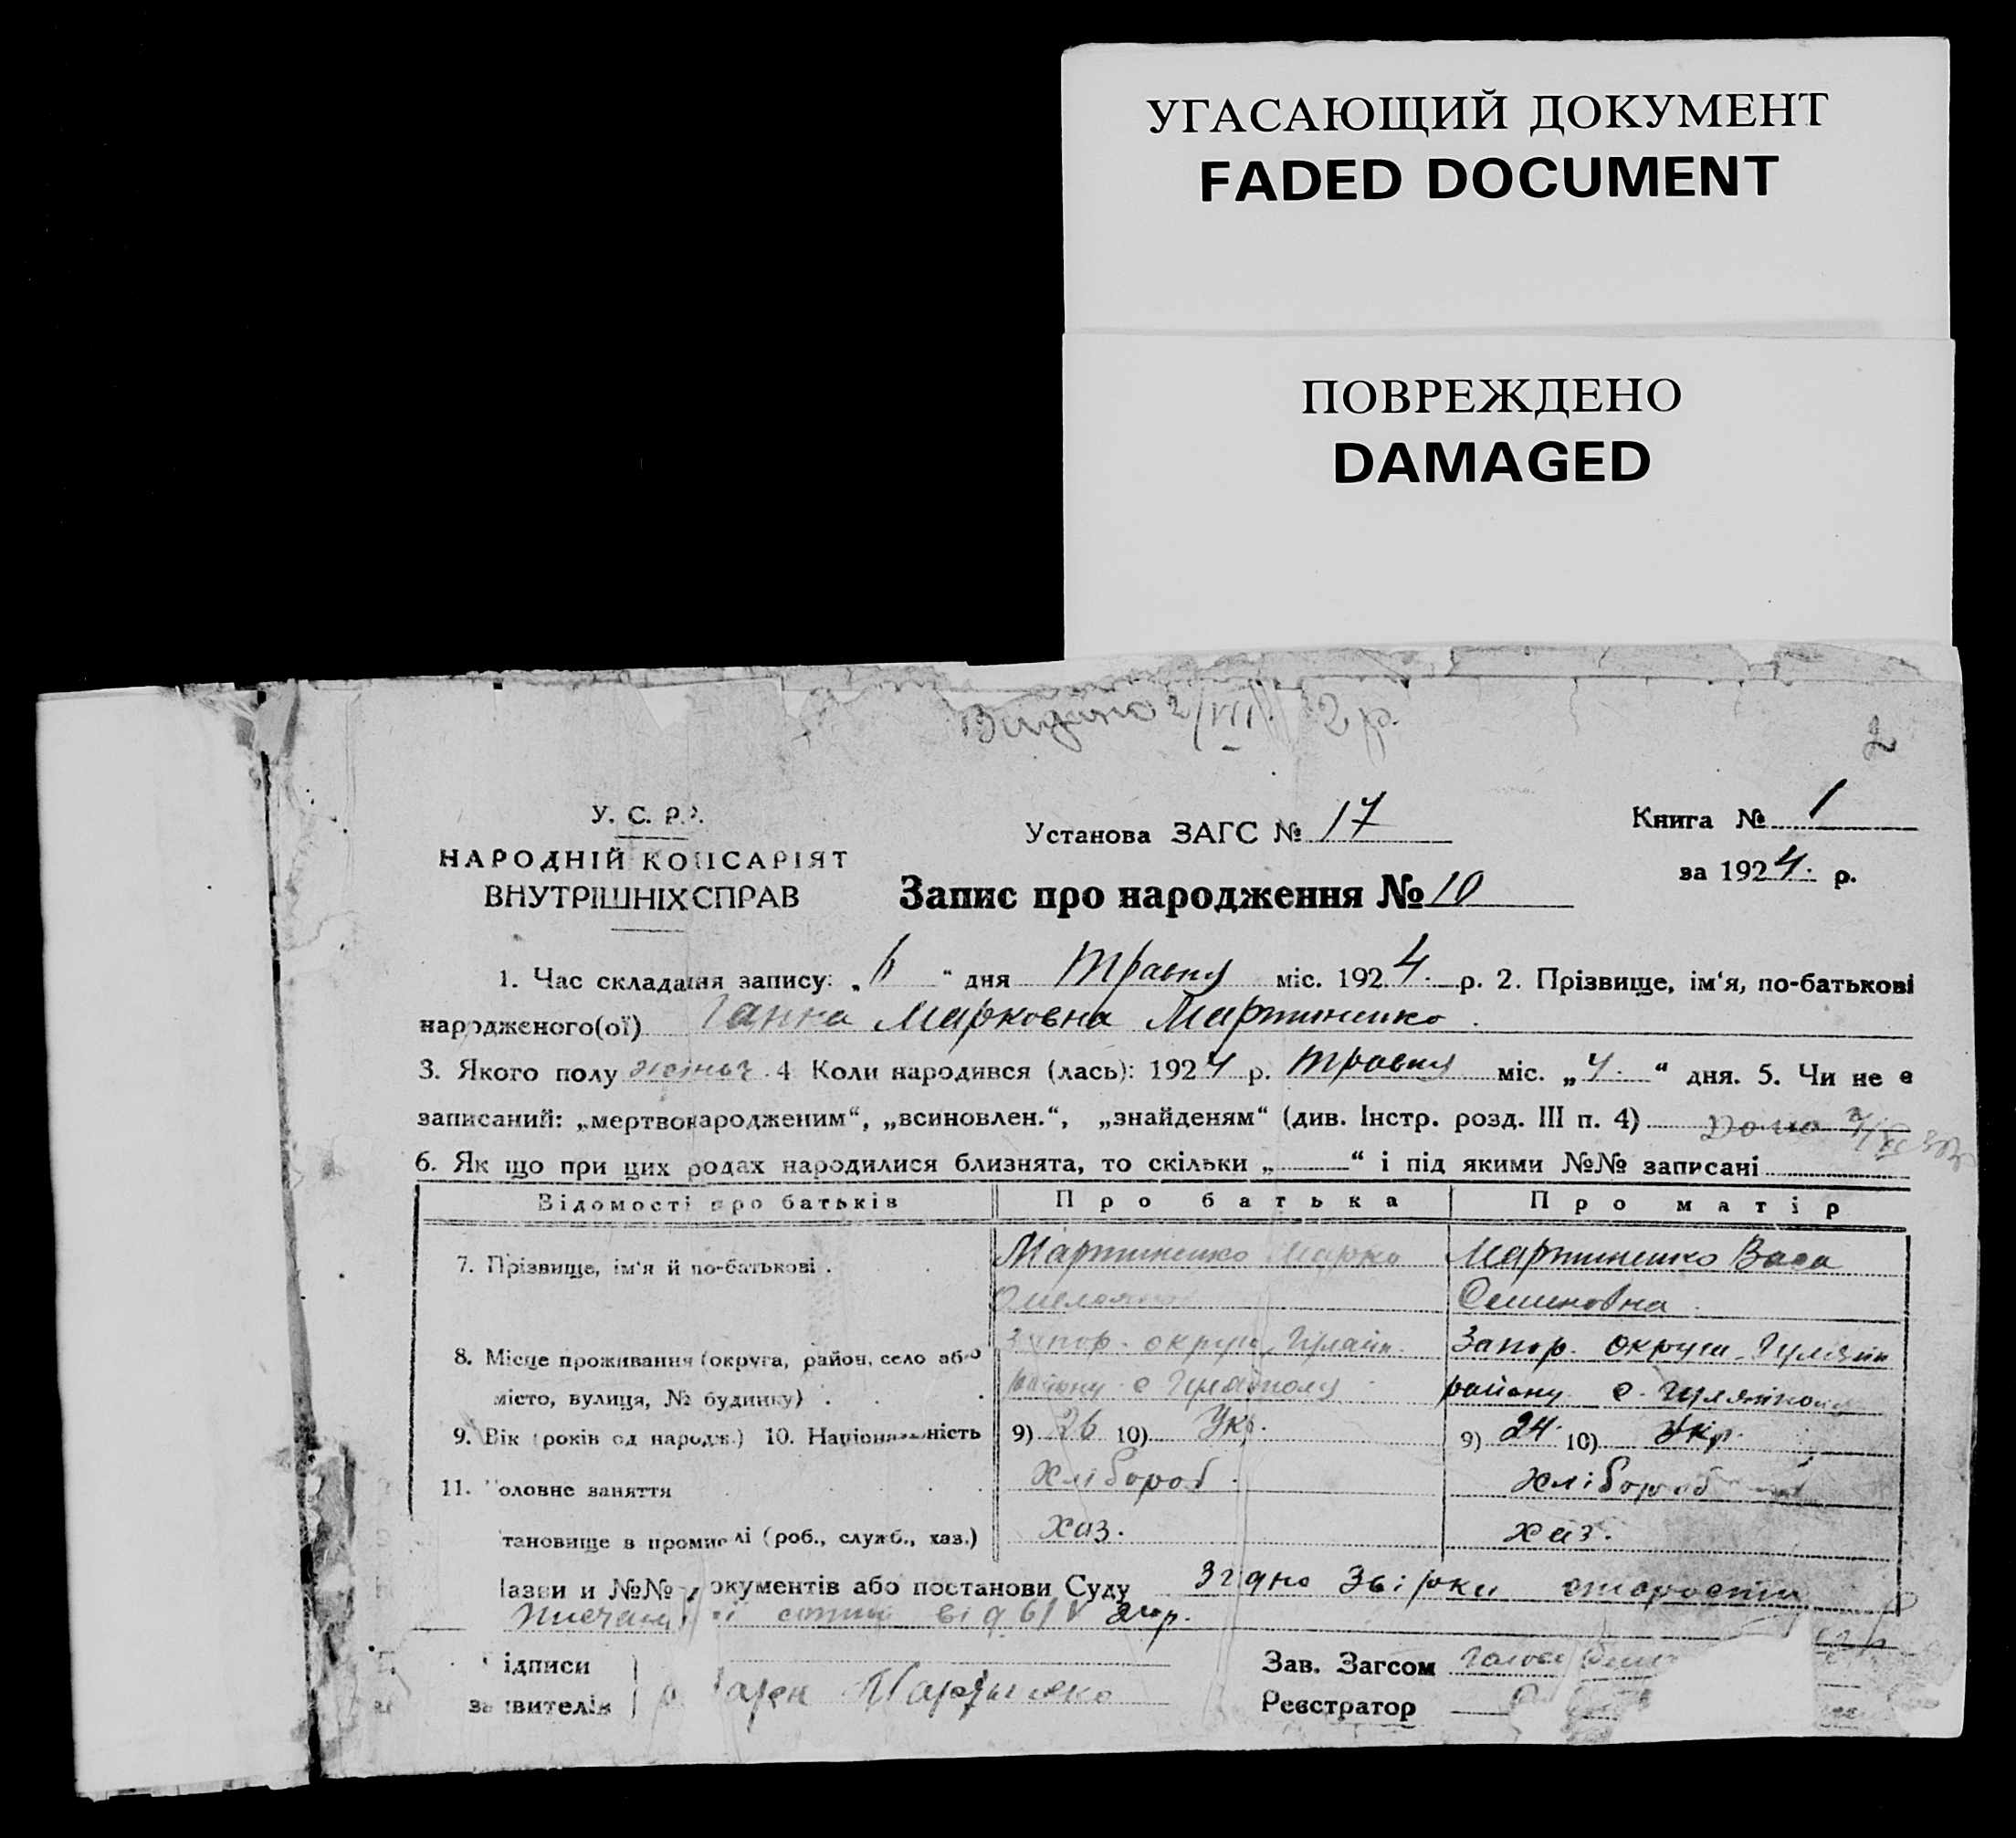 УГАСАЮЩИЙ ДОКУМЕНТ
FADED DOCUMENT
ПОВРЕЖДЕНО
DAMAGED
2
У. С. Р.Р.
НАРОДНІЙ КОМІСАРІЯТ
ВНУТРІШНІХ СПРАВ
Установа ЗАГС № 17
Книга № 1
за 1924. р.
Запис про народження № 10
1. Час складання запису: „6“ дня травня міс. 1924. р. 2. Прізвище, ім‘я, по-батькові
народженого(ої) Ганна Марковна Мартиненко.
3. Якого полу жіноч. 4 Коли народився (лась): 1924 р. травня міс. „4.“ дня. 5. Чи не є
записаний: „мертвонародженим“, „всиновлен.“, „знайденям“ (див. Інстр. розд. III п. 4)
6. Як що при цих родах народилися близнята, то скільки „ “ і під якими №№ записані
Відомості про батьків Про батька Про матір
7. Прізвище, ім‘я й по-батькові . Мартиненко Марко Мартиненко Васа
Семеновна.
8. Місце проживання (округа, район, село або Запор. округи, Гуляйп. Запор. округи, Гуляйп
місто, вулиця, № будинку) . району с Гуляйполя району с. Гуляйполя
9. Вік (років од народж.) 10. Національність 9) 26 10) Укр. 9) 24. 10) Укр.
11. Головне заняття хлібороб. хлібороб
тановище в промислі (роб., служб., хаз.) хаз. хаз.
Назви и №№ документів або постанови Суду Згідно Звірки старости
сотні від 6/V 24р.
ідписи
заявителів Мартиненко
Зав. Загсом
Реєстратор